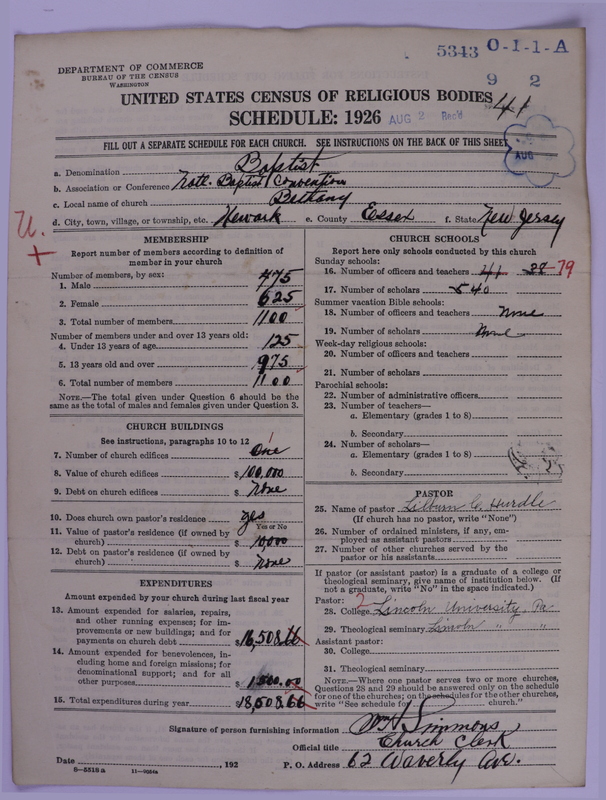 5343 0-1-1-A
DEPARTMENT OF COMMERCE
BUREAU OF THE CENSUS
WASHINGTON
9 2
UNITED STATES CENSUS OF RELIGIOUS BODIES 41
SCHEDULE: 1926 AUG 2 Rec'd
FILL OUT A SEPARATE SCHEDULE FOR EACH CHURCH. SEE INSTRUCTIONS ON THE BACK OF THIS SHEET
AUG
a. Denomination Baptist
b. Association or Conference Natl. Baptist Convention
c. Local name of church Bethany
d. City, town, village, or township, etc. Newark e. County Essex f. State New Jersey
U.
+
MEMBERSHIP
Report number of members according to definition of
member in your church
Number of members, by sex:
1. Male 475
2. Female 625
3. Total number of members 1100
Number of members under and over 13 years old:
4. Under 13 years of age 125
5. 13 years old and over 975
6. Total number of members 1100
NOTE.—The total given under Question 6 should be the
same as the total of males and females given under Question 3.
CHURCH BUILDINGS
See instructions, paragraphs 10 to 12
7. Number of church edifices One 1
8. Value of church edifices $100,000
9. Debt on church edifices $ None
10. Does church own pastor's residence yes
Yes or No
11. Value of pastor's residence (if owned by
church) $ 10,000
12. Debt on pastor's residence (if owned by
church) $ None
EXPENDITURES
Amount expended by your church during last fiscal year
13. Amount expended for salaries, repairs,
and other running expenses; for im-
provements or new buildings; and for
payments on church debt $16,508.66
14. Amount expended for benevolences, in-
cluding home and foreign missions; for
denominational support; and for all
other purposes $
15. Total expenditures during year $18,508.66
CHURCH SCHOOLS
Report here only schools conducted by this church
Sunday schools:
16. Number of officers and teachers 41 38 79
17. Number of scholars 540
Summer vacation Bible schools:
18. Number of officers and teachers None
19. Number of scholars None
Week-day religious schools:
20. Number of officers and teachers
21. Number of scholars
Parochial schools:
22. Number of administrative officers
23. Number of teachers—
a. Elementary (grades 1 to 8)
b. Secondary
24. Number of scholars—
a. Elementary (grades 1 to 8)
b. Secondary
PASTOR
25. Name of pastor Lilburn C. Hurdle
(If church has no pastor, write "None")
26. Number of ordained ministers, if any, em-
ployed as assistant pastors
27. Number of other churches served by the
pastor or his assistants
If pastor (or assistant pastor) is a graduate of a college or
theological seminary, give name of institution below. (If
not a graduate, write "No" in the space indicated.)
Pastor: 2
28. College Lincoln University, Pa.
29. Theological seminary Lincoln " "
Assistant pastor:
30. College
31. Theological seminary
NOTE.—Where one pastor serves two or more churches,
Questions 28 and 29 should be answered only on the schedule
for one of the churches; on the schedules for the other churches,
write "See schedule for church."
Signature of person furnishing information Wm H Simmons
Official title Church Clerk
Date , 192 P. O. Address 62 Waverly Ave.
6—5518a 11—9064a